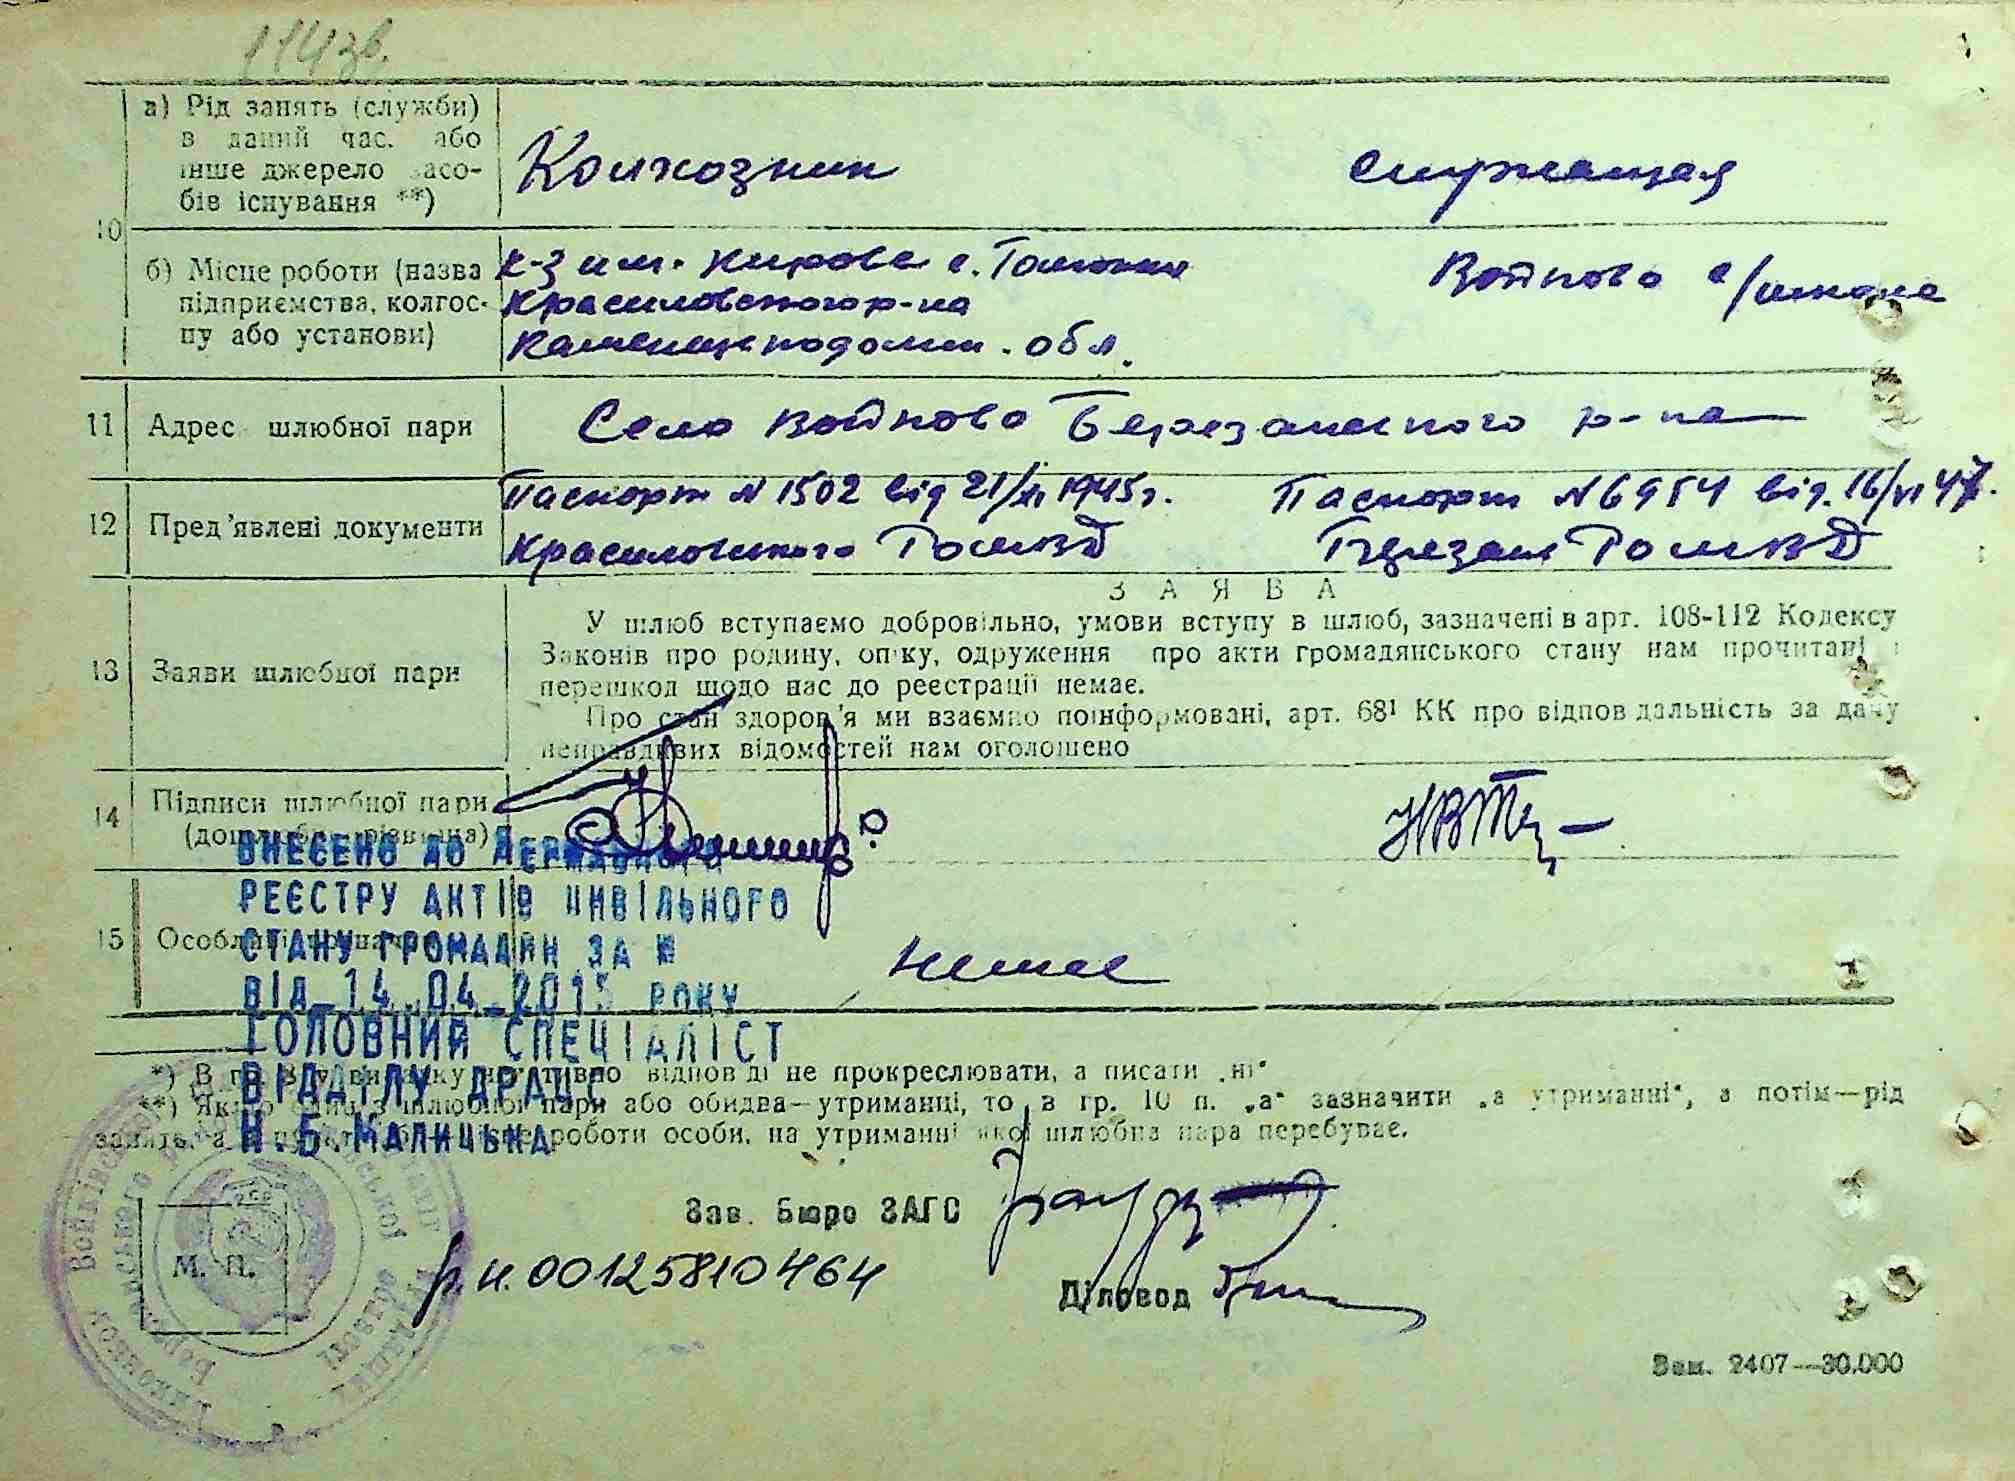 114зв.
а) Рід занять (служби)
в даний час. або
інше джерело засо-
бів існування **)
Колхозник
служащая
10
б) Місце роботи (назва
підприємства, колгос-
пу або установи)
к-з им. Кирова с.
Красиловского р-на
Каменецподольск. обл.
Войтово с/школа
11
Адрес шлюбної пари
Село Войтово Березанского р-на
12
Пред'явлені документи
Паспорт № 1502 від 21/ 1945г.
Красиловского
Паспорт №6954 від. 16/VI 47.
13
Заяви шлюбної пари
ЗАЯВА
У шлюб вступаємо добровільно, умови вступу в шлюб, зазначені в арт. 108-112 Кодексу
Законів про родину, опіку, одруження про акти громадянського стану нам прочитані і
перешкод щодо нас до реєстрації немає.
Про стан здоров'я ми взаємно поінформовані, арт. 68¹ КК про відповідальність за дачу
неправдивих відомостей нам оголошено
14
Підписи шлюбної пари
(дошлюбні прізвища)
15
Особливі
Немае
ВНЕСЕНО ДО ДЕРЖАВНОГО
РЕЄСТРУ АКТІВ ЦИВІЛЬНОГО
СТАНУ ГРОМАДЯН ЗА №
ВІД 14.04.2015 РОКУ
ГОЛОВНИЙ СПЕЦІАЛІСТ
ВІДДІЛУ ДРАЦС
Н.Б.МАЛИЦЬКА
*) В не прокреслювати, а писати „ні“
**) Якщо шлюбної пари або обидва—утриманці, то в гр. 10 п. „а“ зазначити „а утриманні“, а потім—рід
занять, а роботи особи, на утриманні якої шлюбна пара перебуває.
М. П.
Зав. Бюро ЗАГС
р.н. 00125810464
Діловод
Зам. 2407—30.000